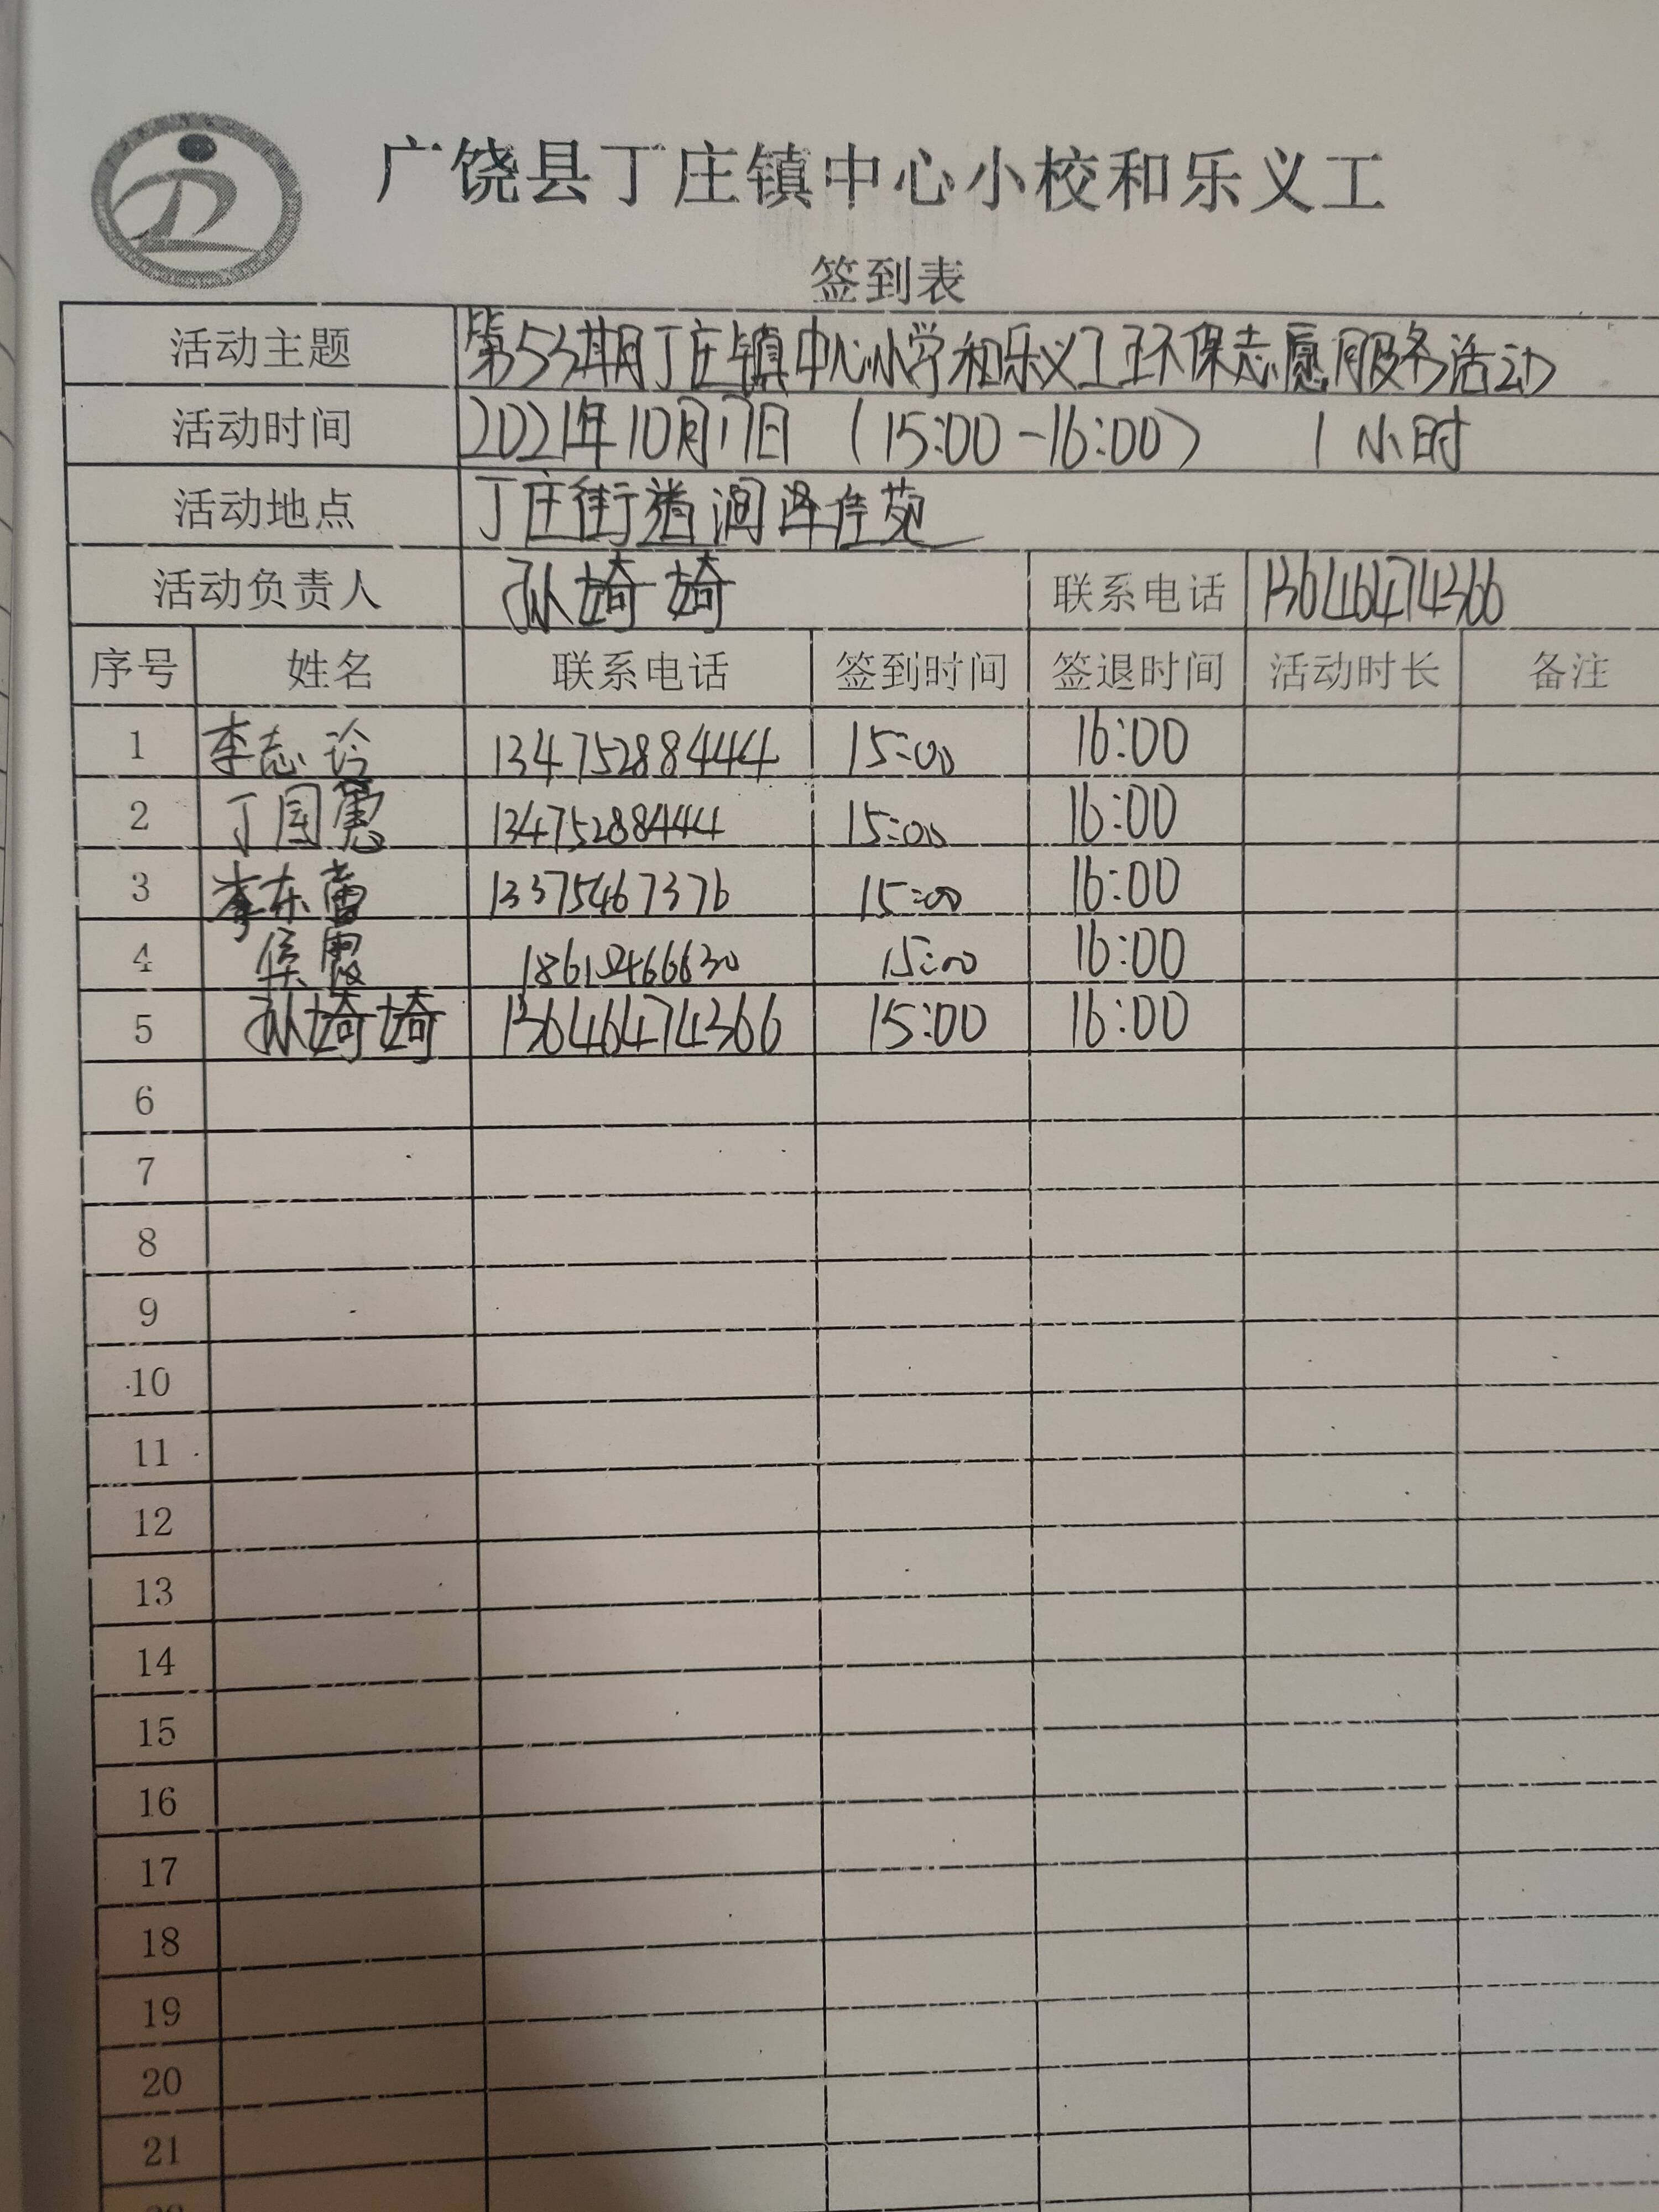 广饶县丁庄镇中心小校和乐义工
签到表
活动主题 第53期丁庄镇中心小学和乐义工环保志愿服务活动
活动时间 2021年10月17日 (15:00-16:00) 1小时
活动地点 丁庄街道润泽佳苑
活动负责人 孙婍婍 联系电话 13646474366
序号 姓名 联系电话 签到时间 签退时间 活动时长 备注
1 李志 13475288444 15:00 16:00
2 丁国 13475288444 15:00 16:00
3 李东蕾 13375467376 15:00 16:00
4 侯霞 15:00 16:00
5 孙婍婍 13646474366 15:00 16:00
6
7
8
9
10
11
12
13
14
15
16
17
18
19
20
21